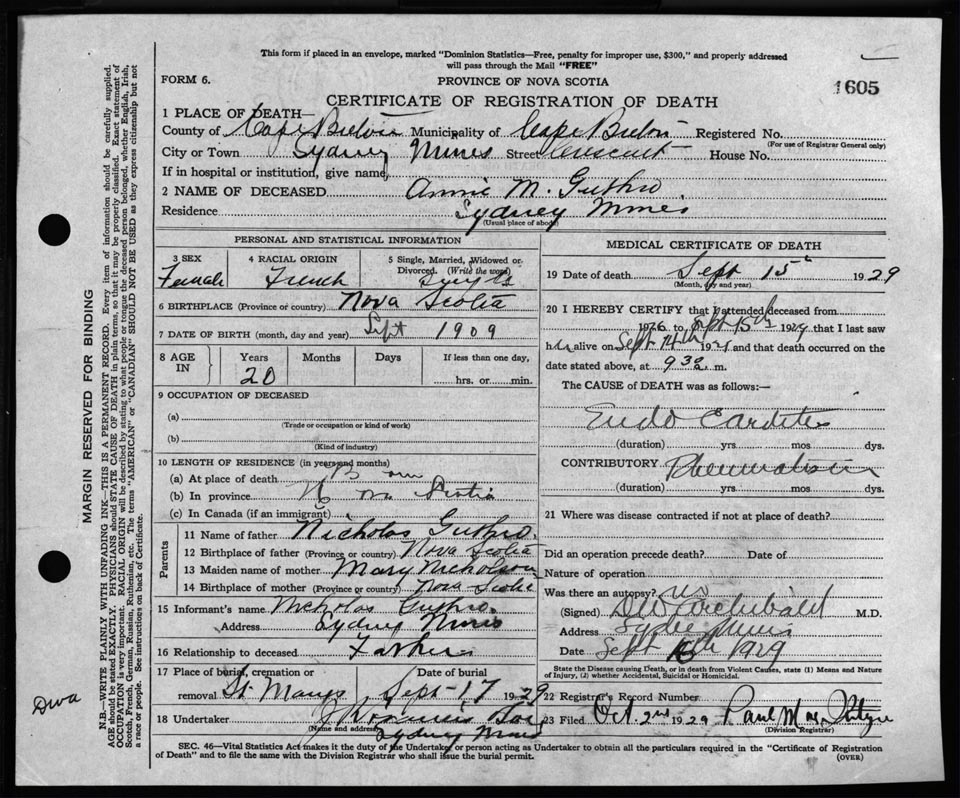 This form if placed in an envelope, marked "Dominion Statistics—Free, penalty for improper use, $300," and properly addressed
will pass through the Mail "FREE"
FORM 6.
PROVINCE OF NOVA SCOTIA
1605
CERTIFICATE OF REGISTRATION OF DEATH
1 PLACE OF DEATH—
County of Cape Breton Municipality of Cape Breton Registered No.
(For use of Registrar General only)
City or Town Sydney Mines Street Crescent House No.
If in hospital or institution, give name
2 NAME OF DECEASED Annie M. Guthro
Residence Sydney Mines
(Usual place of abode)
PERSONAL AND STATISTICAL INFORMATION
3 SEX
Female
4 RACIAL ORIGIN
French
5 Single, Married, Widowed or
Divorced. (Write the word)
Single
6 BIRTHPLACE (Province or country) Nova Scotia
7 DATE OF BIRTH (month, day and year) Sept 1909
8 AGE IN
Years Months Days If less than one day,
20
hrs. or min.
9 OCCUPATION OF DECEASED
(a)
(Trade or occupation or kind of work)
(b)
(Kind of industry)
10 LENGTH OF RESIDENCE (in years and months)
(a) At place of death Born
(b) In province Nova Scotia
(c) In Canada (if an immigrant)
Parents
11 Name of father Nicholas Guthro.
12 Birthplace of father (Province or country) Nova Scotia
13 Maiden name of mother Mary Nicholson
14 Birthplace of mother (Province or country) Nova Scotia
15 Informant's name Nicholas Guthro.
Address Sydney Mines
16 Relationship to deceased Father
17 Place of burial, cremation or
removal St. Marys
Date of burial
Sept-17 1929
18 Undertaker
(Name and address)
Sydney Mines
MEDICAL CERTIFICATE OF DEATH
19 Date of death Sept 15th 1929
(Month, day and year)
20 I HEREBY CERTIFY that I attended deceased from
1926 to Sept 15th 1929 that I last saw
her alive on Sept 14th 1929 and that death occurred on the
date stated above, at 9 30 a. m.
The CAUSE of DEATH was as follows:—
Endo Carditis
(duration) yrs. mos. dys.
CONTRIBUTORY Rheumatism
(duration) yrs. mos. dys.
21 Where was disease contracted if not at place of death?
Did an operation precede death? Date of
Nature of operation
Was there an autopsy? no
(Signed) Archibald M.D.
Address Sydney Mines
Date Sept 1929
State the Disease causing Death, or in death from Violent Causes, state (1) Means and Nature
of Injury, (2) whether Accidental, Suicidal or Homicidal.
22 Registrar's Record Number
23 Filed Oct 2nd 1929 Paul MacIntyre
(Division Registrar)
SEC. 46—Vital Statistics Act makes it the duty of the Undertaker or person acting as Undertaker to obtain all the particulars required in the "Certificate of Registration
of Death" and to file the same with the Division Registrar who shall issue the burial permit.
(OVER)
MARGIN RESERVED FOR BINDING
N.B.—WRITE PLAINLY WITH UNFADING INK—THIS IS A PERMANENT RECORD. Every item of information should be carefully supplied.
AGE should be stated EXACTLY. PHYSICIANS should STATE CAUSE OF DEATH in plain terms, so that it may be properly classified. Exact statement of
OCCUPATION is very important. RACIAL ORIGIN will be described by stating to what people or tongue the deceased person belonged, whether English, Irish,
Scotch, French, German, Russian, Ruthenian, etc. The terms "AMERICAN" or "CANADIAN" SHOULD NOT BE USED as they express citizenship but not
a race or people. See instructions on back of Certificate.